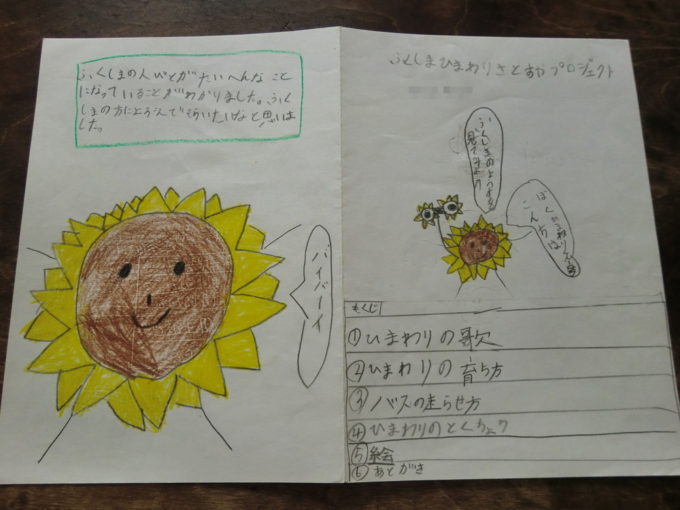 ふくしまの人びとがたいへんなこと
になっていることがわかりました。ふくし
まの方によろこんでもらいたいなと思いま
した。
バイバーイ
ふくしまひまわりさとおやプロジェクト
ふくしまのようすを
見てみよう
ぼくひまわりくん
こんにちは
もくじ
①ひまわりの歌
②ひまわりの育ち方
③バスの走らせ方
④ひまわりのとくちょう
⑤絵
⑥あとがき